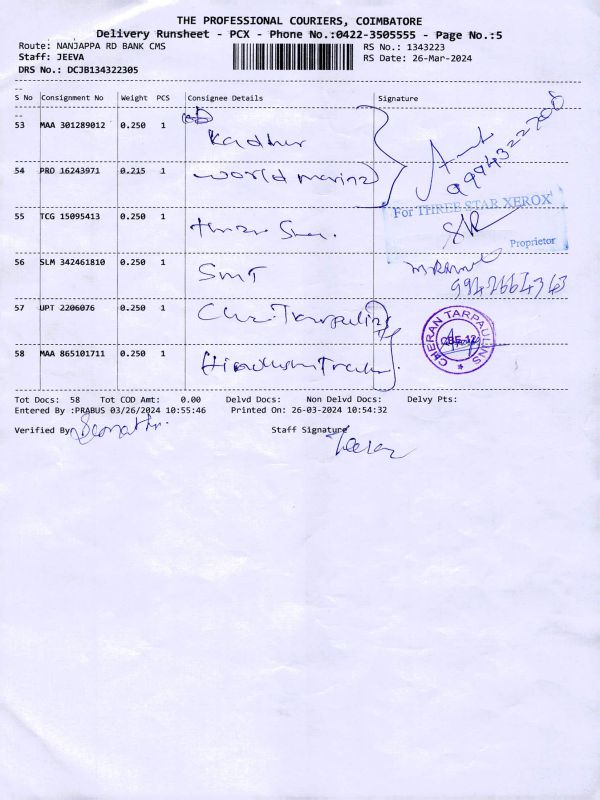 THE PROFESSIONAL COURIERS, COIMBATORE
Delivery Runsheet - PCX - Phone No.:0422-3505555 - Page No.:5
Route: NANJAPPA RD BANK CMS
RS No.: 1343223
Staff: JEEVA
RS Date: 26-Mar-2024
DRS No.: DCJB134322305
S No Consignment No Weight PCS Consignee Details Signature
53 MAA 301289012 0.250 1 Kadher
9994322708
54 PRO 16243971 0.215 1 world marine
For THREE STAR XEROX
55 TCG 15095413 0.250 1
Proprietor
56 SLM 342461810 0.250 1 SMT
99426664343
57 UPT 2206076 0.250 1 Che. Tarpaulin
CHERAN TARPAULINS
CBE-12
58 MAA 865101711 0.250 1
Tot Docs: 58 Tot COD Amt: 0.00 Delvd Docs: Non Delvd Docs: Delvy Pts:
Entered By :PRABUS 03/26/2024 10:55:46 Printed On: 26-03-2024 10:54:32
Verified By
Staff Signature